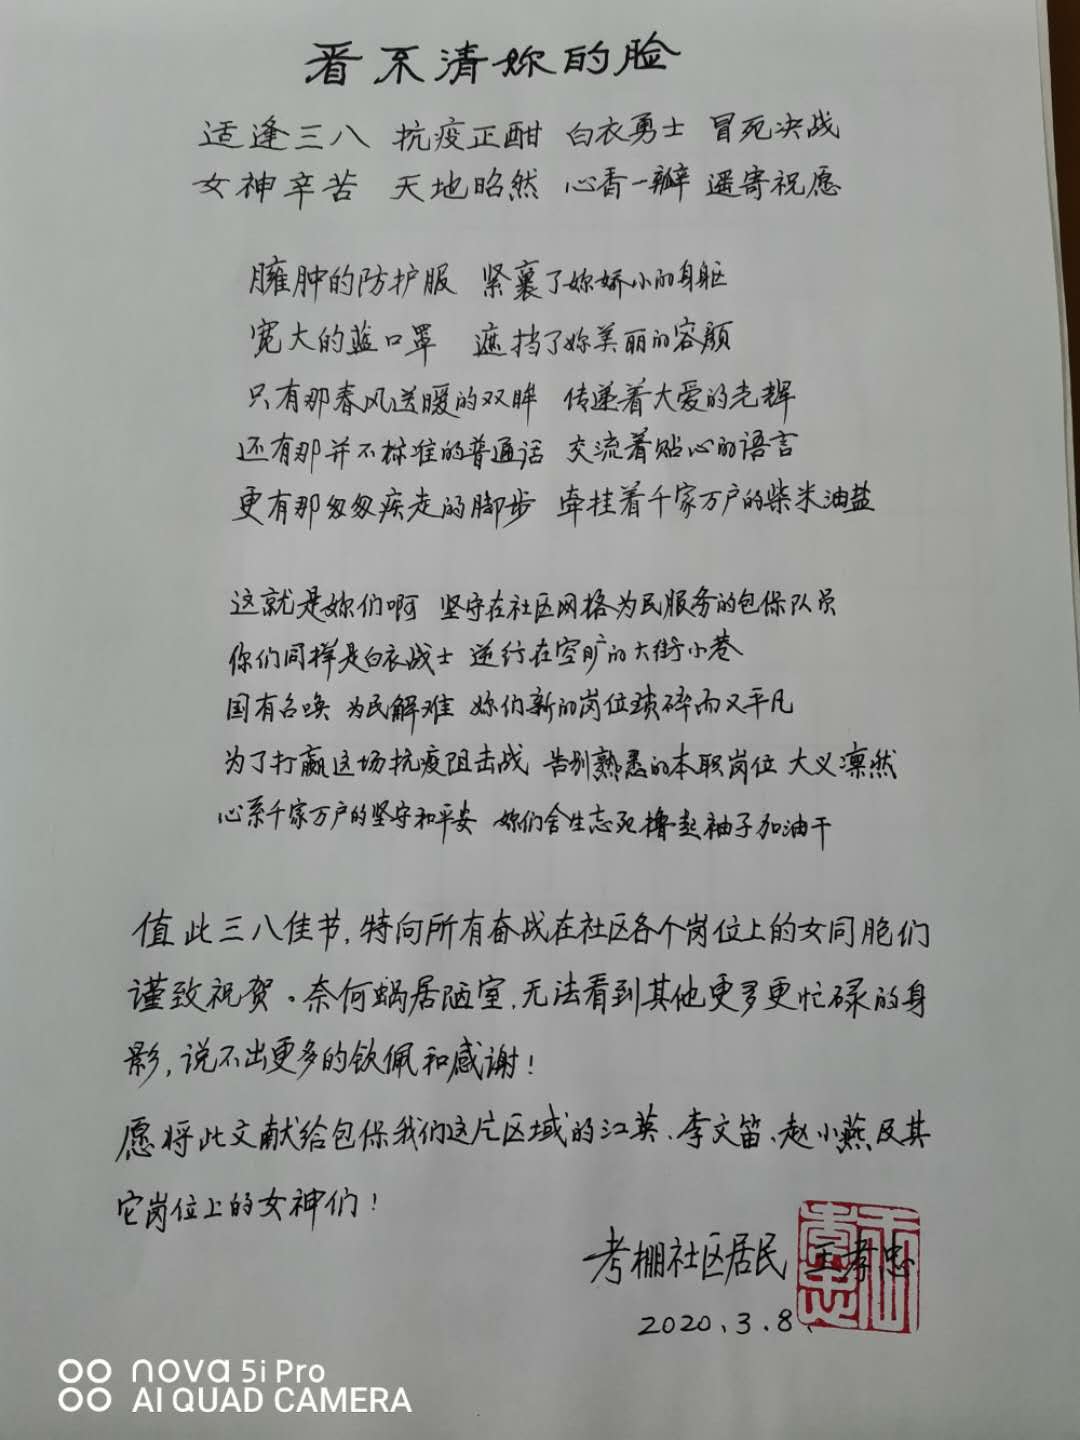 看不清妳的脸
适逢三八 抗疫正酣 白衣勇士 冒死决战
女神辛苦 天地昭然 心香一瓣 遥寄祝愿
臃肿的防护服 紧裹了妳娇小的身躯
宽大的蓝口罩 遮挡了妳美丽的容颜
只有那春风送暖的双眸 传递着大爱的光辉
还有那并不标准的普通话 交流着贴心的语言
更有那匆匆疾走的脚步 牵挂着千家万户的柴米油盐
这就是妳们啊 坚守在社区网格为民服务的包保队员
你们同样是白衣战士 逆行在空旷的大街小巷
国有召唤 为民解难 妳们新的岗位琐碎而又平凡
为了打赢这场抗疫阻击战 告别熟悉的本职岗位 大义凛然
心系千家万户的坚守和平安 妳们舍生忘死撸起袖子加油干
值此三八佳节,特向所有奋战在社区各个岗位上的女同胞们
谨致祝贺。奈何蜗居陋室,无法看到其他更多更忙碌的身
影,说不出更多的钦佩和感谢!
愿将此文献给包保我们这片区域的江英、李文笛、赵小燕及其
它岗位上的女神们!
考棚社区居民 王孝忠
2020.3.8.
nova 5i Pro
AI QUAD CAMERA